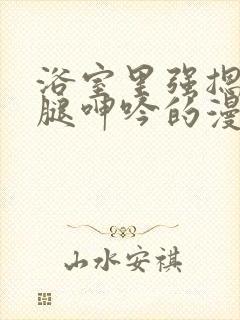 浴室里强摁
腿呻吟的漫
山水安祺